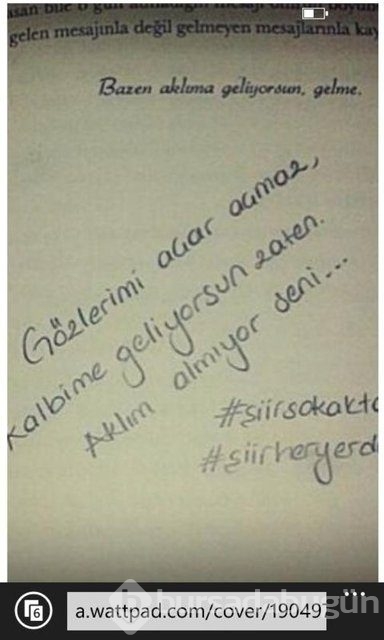 gelen mesajınla değil gelmeyen mesajlarınla kay
Bazen aklıma geliyorsun, gelme.
Gözlerimi acar acmaz,
kalbime geliyorsun zaten.
Aklım almıyor seni...
#şiirsokakta
#şiirheryerd
6
a.wattpad.com/cover/190497
bursadabugün